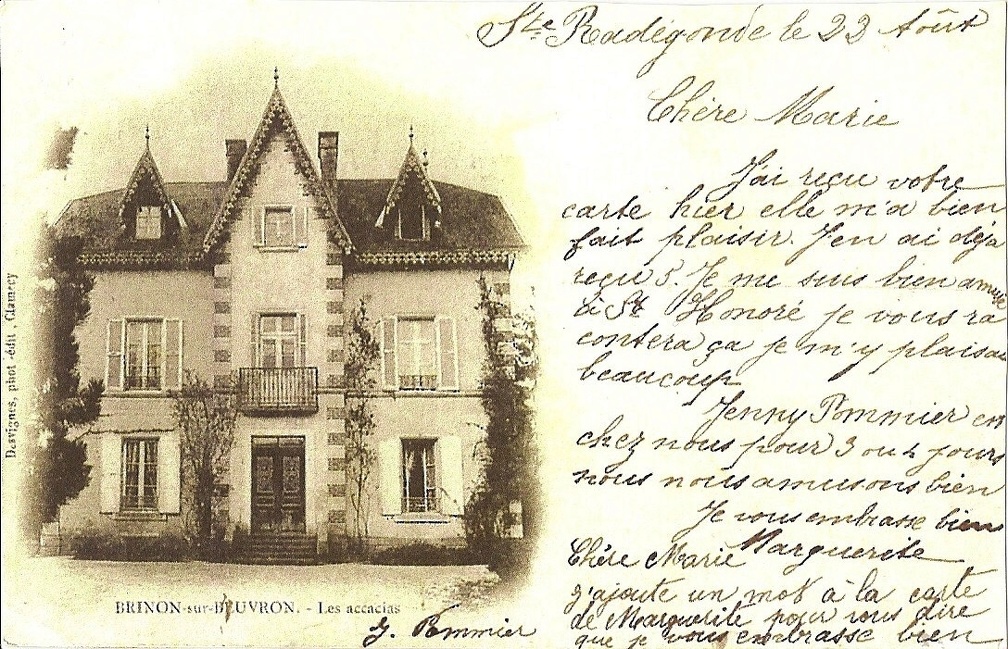 Ste Radégonde le 23 Août
Chère Marie
J'ai reçu votre
carte hier elle m'a bien
fait plaisir. J'en ai déja
reçu 5. Je me suis bien amusé
à St Honoré je vous ra
contera ça je m'y plaisai
beaucoup
Jenny Pommier est
chez nous pour 3 ou 4 jours
nous nous amusons bien
Je vous embrasse bien
Marguerite
Chère Marie
j'ajoute un mot à la carte
de Marguerite pour vous dire
que je vous embrasse bien
J. Pommier
BRINON-sur-BEUVRON. - Les accacias
Desvignes, phot.-édit, Clamecy